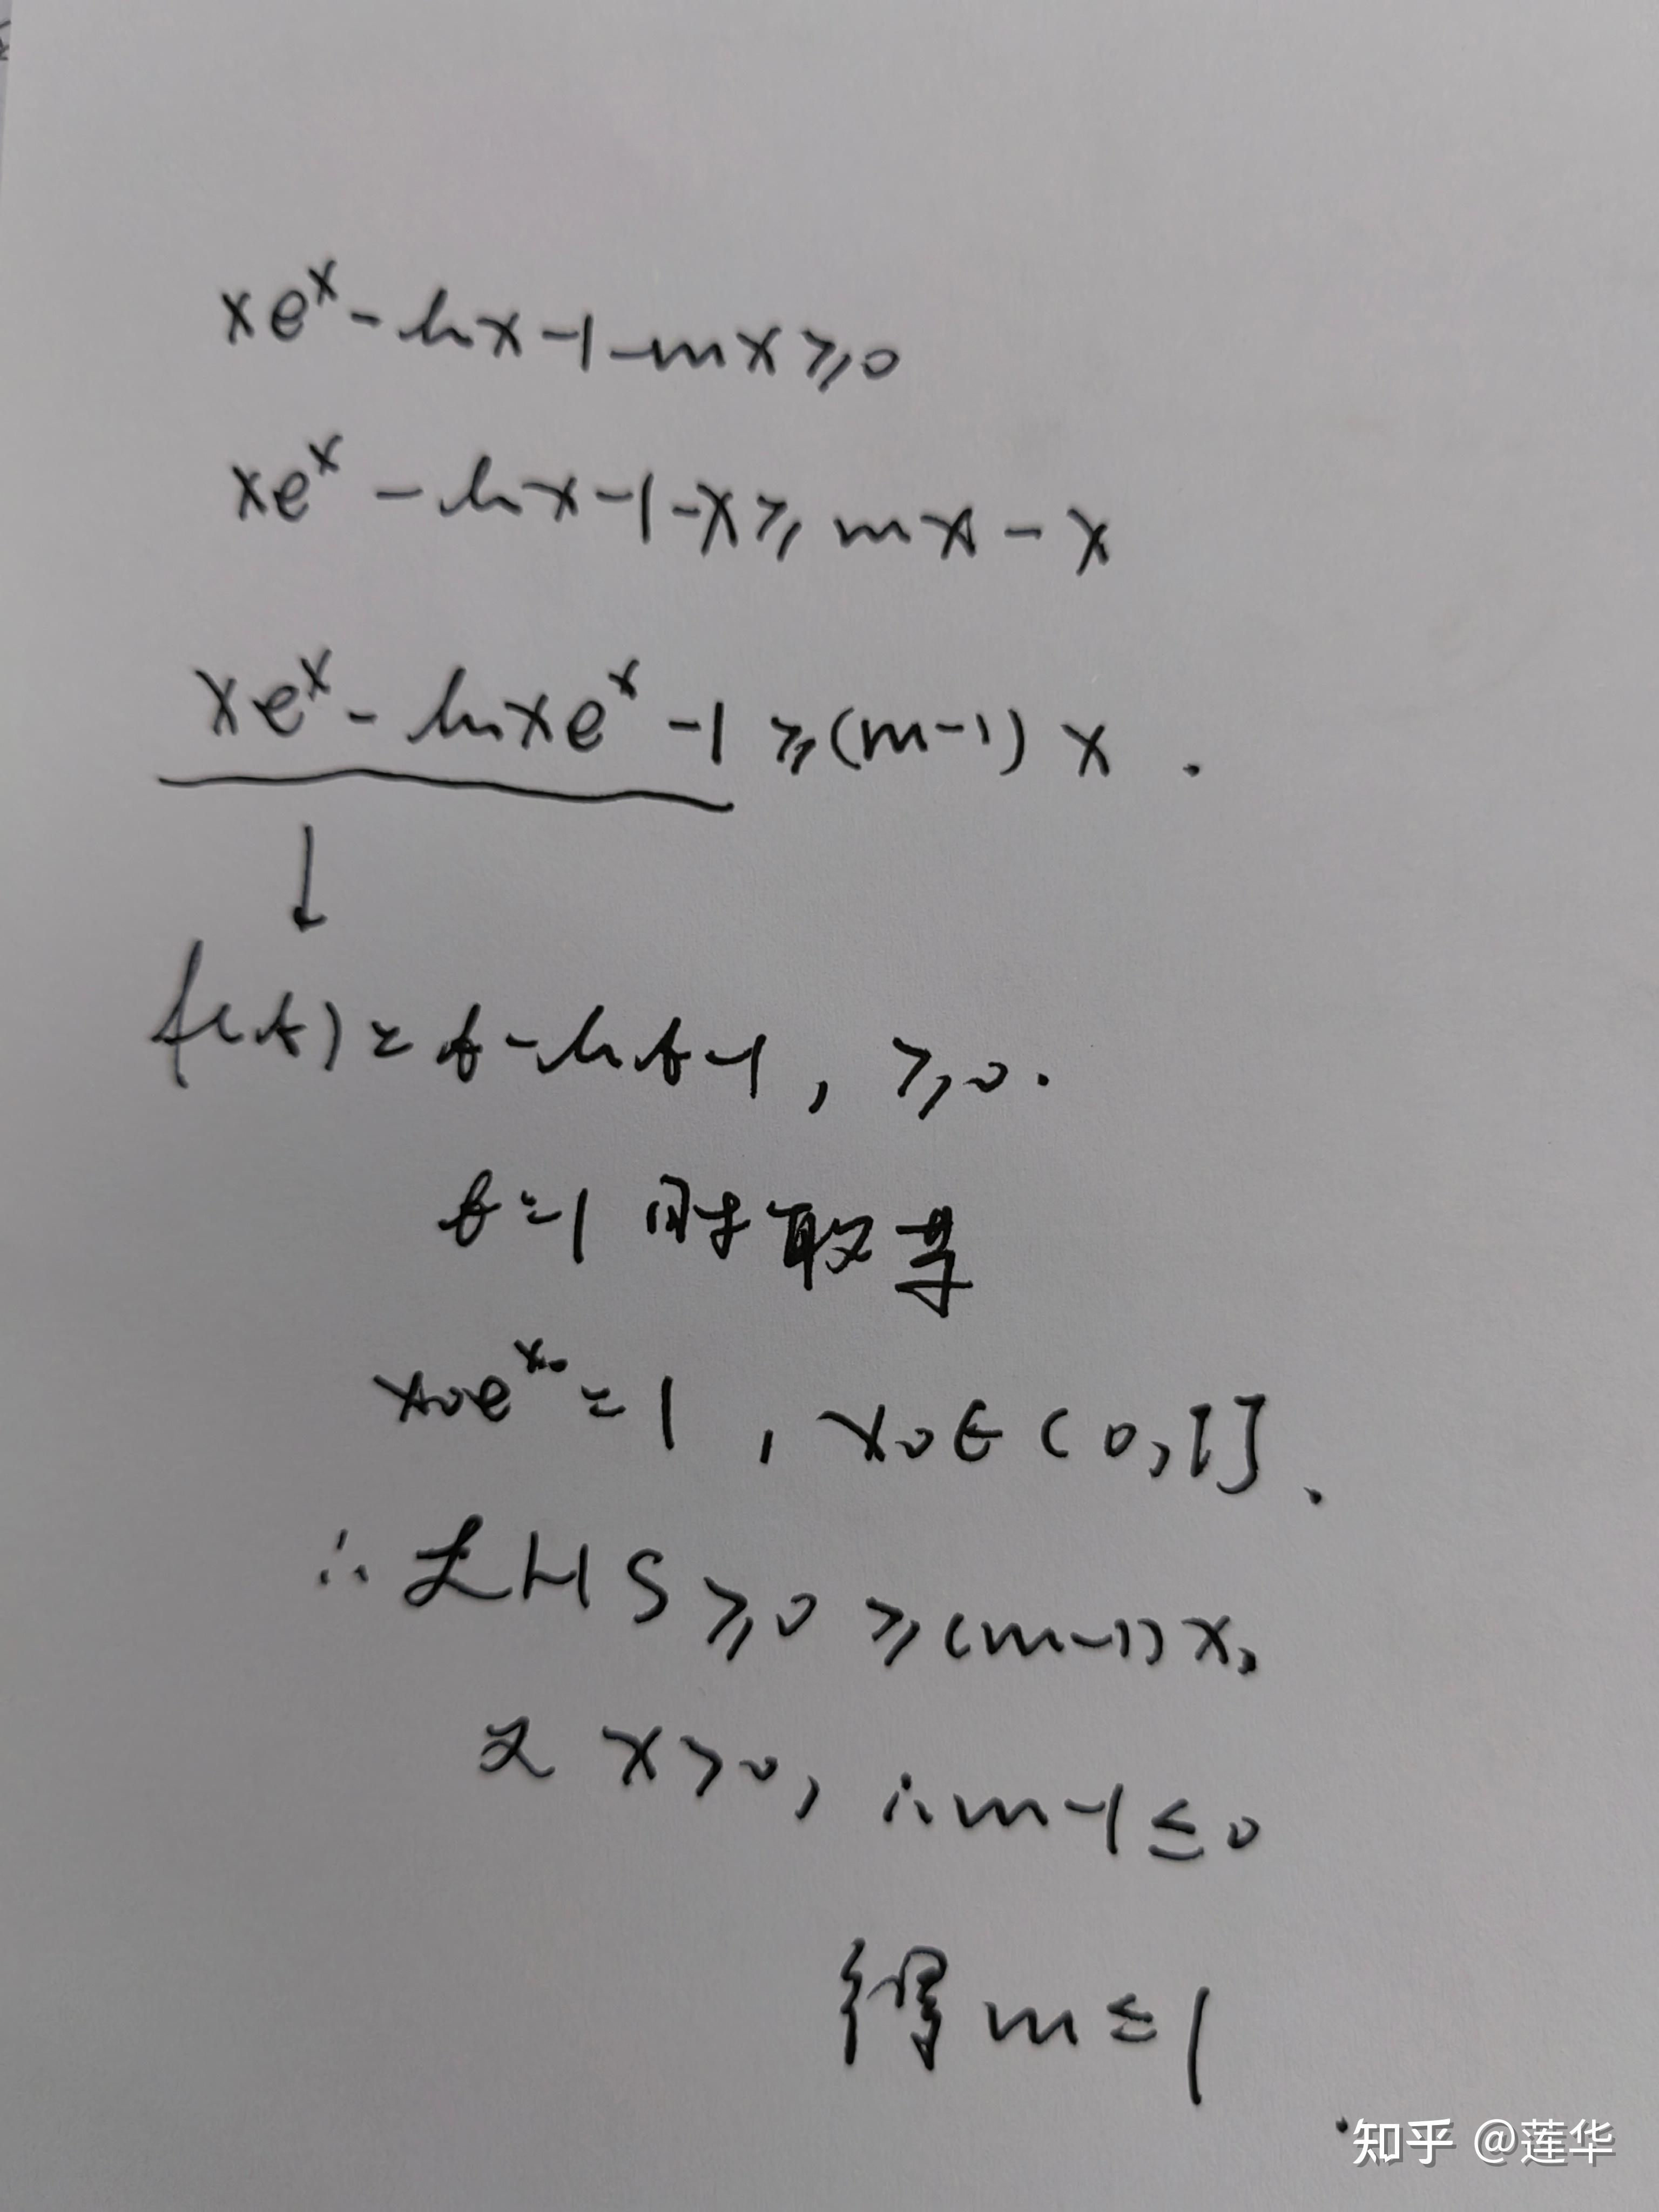 xeˣ - ln x - 1 - mx ≥ 0
xeˣ - ln x - 1 - x ≥ mx - x
xeˣ - ln xeˣ - 1 ≥ (m-1) x .
↓
f(t) = t - ln t - 1 , ≥ 0 .
t = 1 时取等
x₀e^x₀ = 1 , x₀ ∈ ( 0, 1] .
∴ LHS ≥ 0 ≥ (m-1) x ,
又 x > 0 , ∴ m-1 ≤ 0
得 m ≤ 1
知乎 @莲华